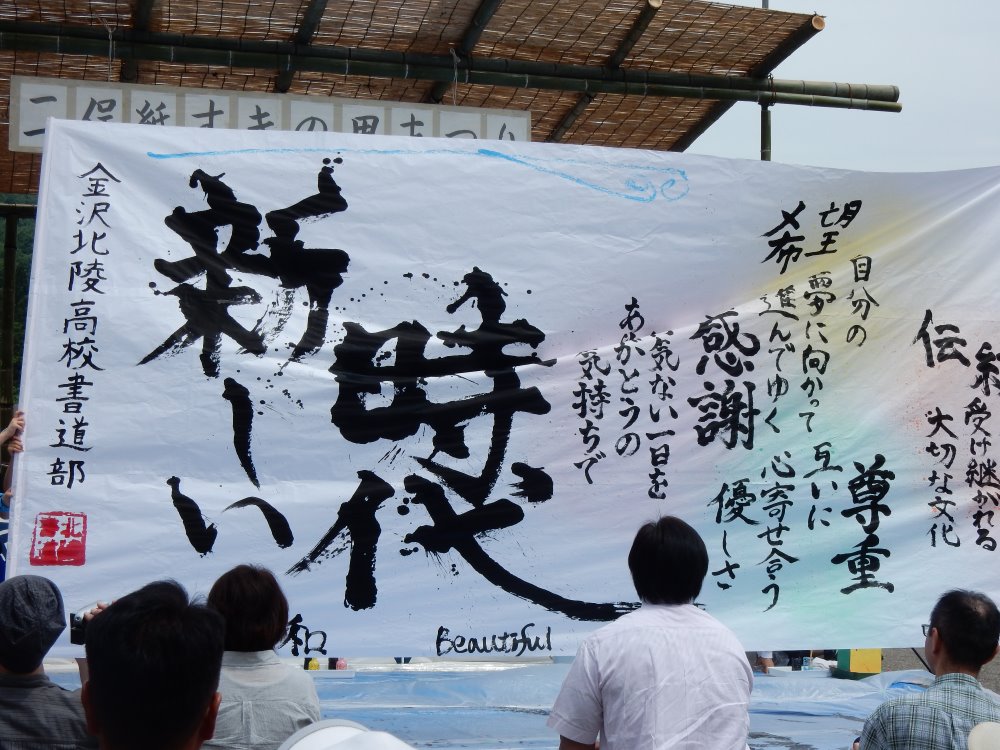 二俣紙すきの里まつり
受け継がれる
大切な文化
伝
自分の
希望
夢に向かって
進んでゆく
尊重
互いに
心寄せ合う
優しさ
感謝
気ない一日を
ありがとうの
気持ちで
新しい
時代
和
Beautiful
金沢北陵高校書道部